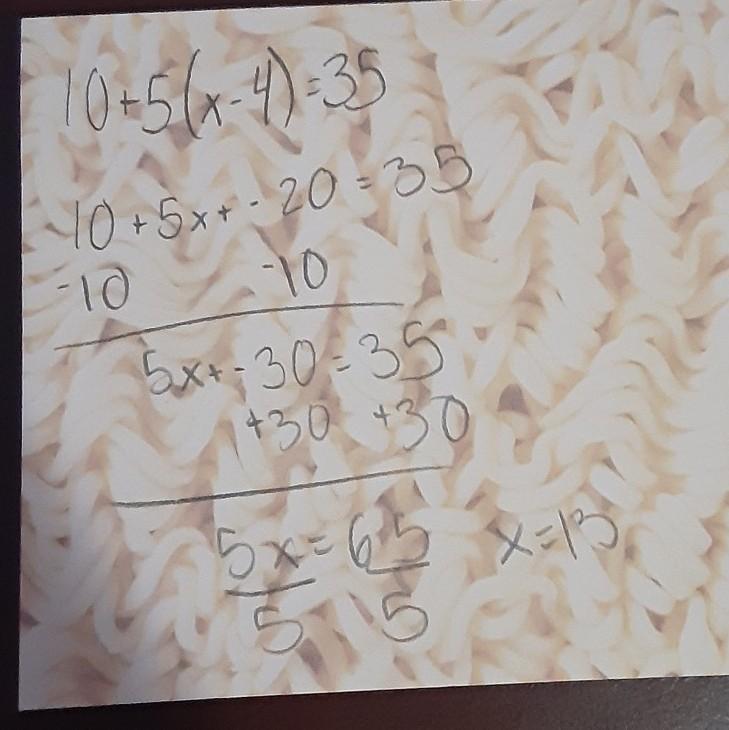 10+5(x-4)=35
10+5x+-20=35
-10 -10
5x+-30=35
+30 +30
5x=65 x=13
5 5